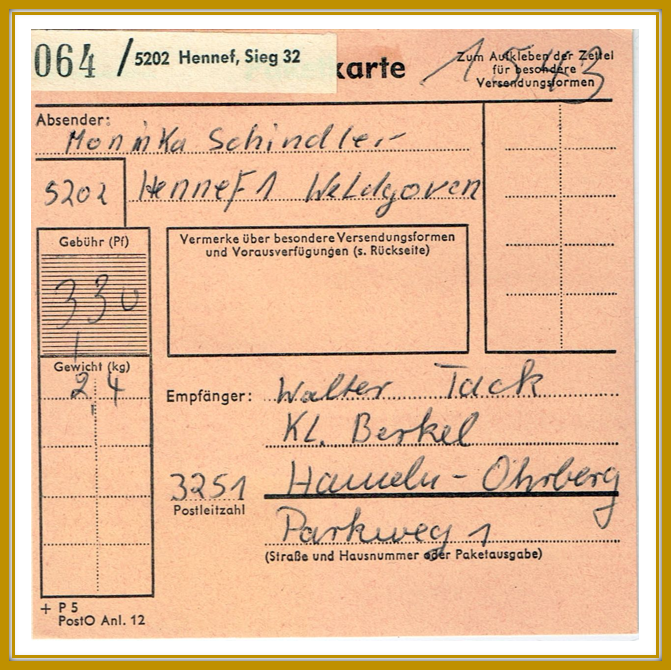 064 / 5202 Hennef, Sieg 32
karte
Zum Aufkleben der Zettel
für besondere
Versendungsformen
Absender:
Monika Schindler
5202 Hennef 1 Weldgoven
Gebühr (Pf)
330
Vermerke über besondere Versendungsformen
und Vorausverfügungen (s. Rückseite)
Gewicht (kg)
2,4
Empfänger: Walter Tack
Kl. Berkel
3251 Hameln - Ohrberg
Postleitzahl
Parkweg 1
(Straße und Hausnummer oder Paketausgabe)
+ P 5
PostO Anl. 12